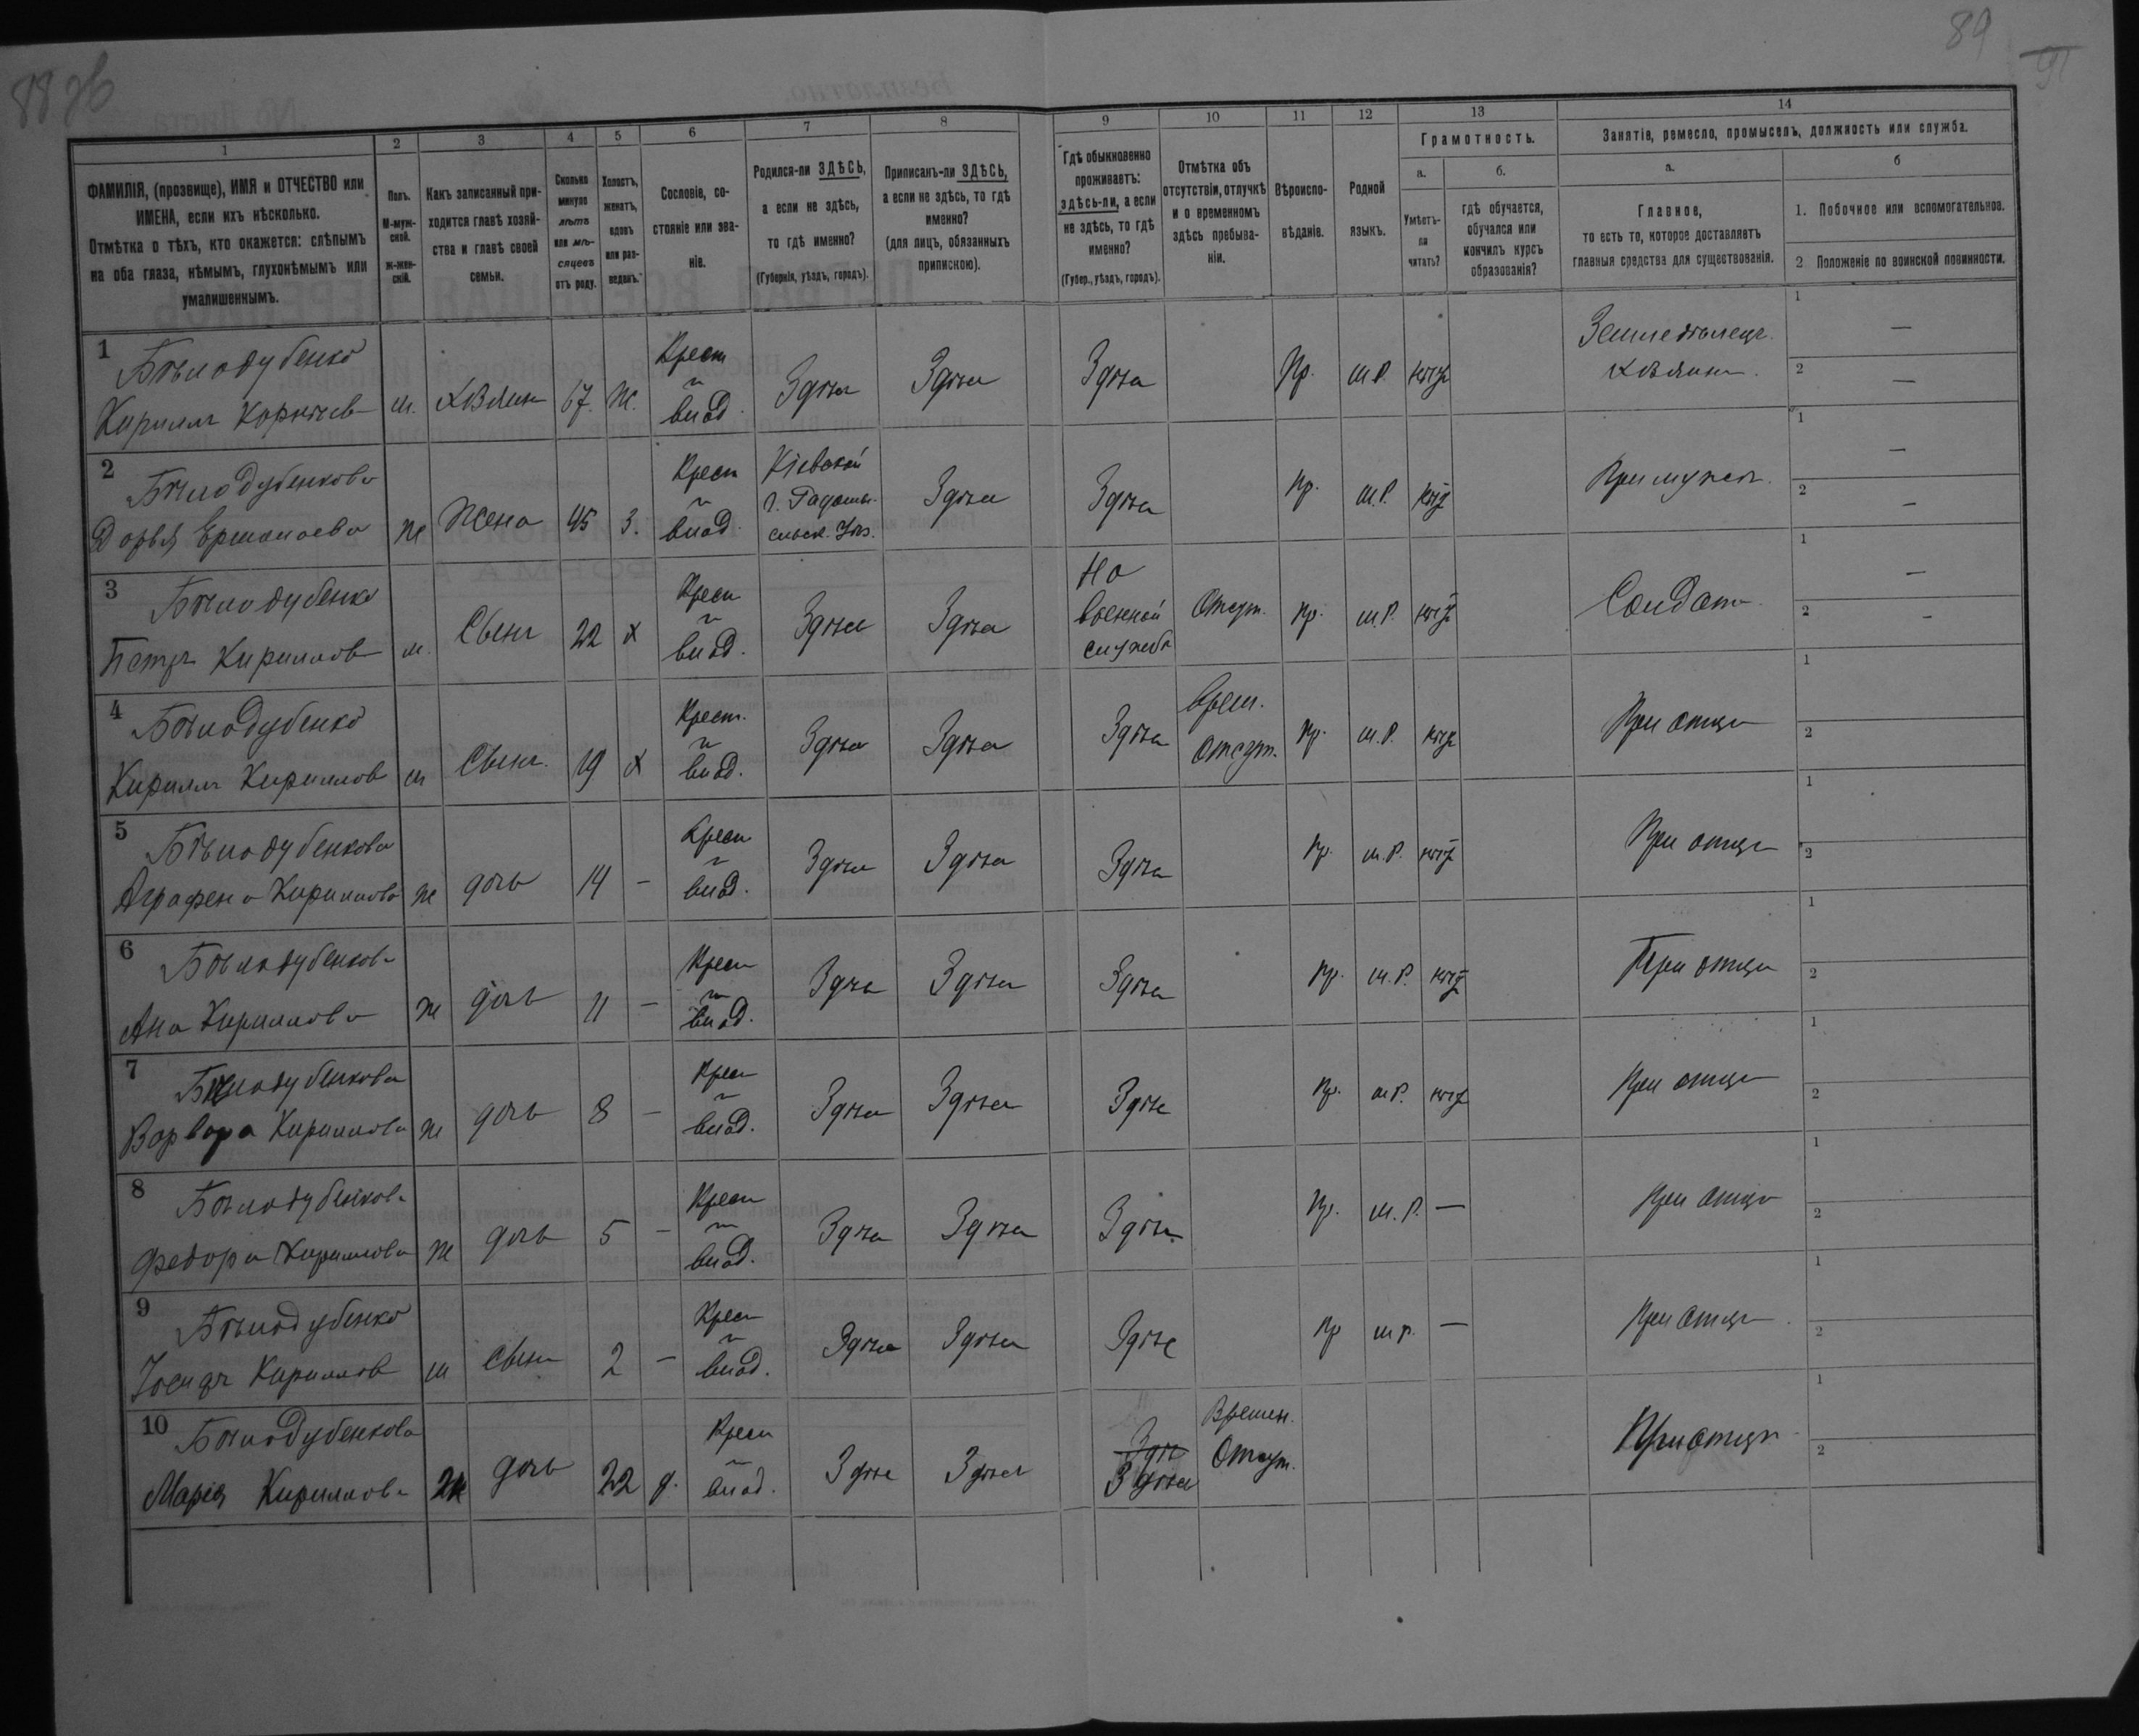 88 об
89
91
1
2
3
4
5
6
7
8
9
10
11
12
13
14
ФАМИЛІЯ, (прозвище), ИМЯ и ОТЧЕСТВО или
ИМЕНА, если ихъ нѣсколько.
Отмѣтка о тѣхъ, кто окажется: слѣпымъ
на оба глаза, нѣмымъ, глухонѣмымъ или
умалишеннымъ.
Полъ.
М-муж-
ской.
Ж-жен-
скій.
Какъ записанный при-
ходится главѣ хозяй-
ства и главѣ своей
семьи.
Сколько
минуло
лѣтъ
или мѣ-
сяцевъ
отъ роду.
Холостъ,
женатъ,
вдовъ
или раз-
веденъ.
Сословіе, со-
стояніе или зва-
ніе.
Родился-ли ЗДѢСЬ,
а если не здѣсь,
то гдѣ именно?
(Губернія, уѣздъ, городъ).
Приписанъ-ли ЗДѢСЬ,
а если не здѣсь, то гдѣ
именно?
(для лицъ, обязанныхъ
припискою).
Гдѣ обыкновенно
проживаетъ:
здѣсь-ли, а если
не здѣсь, то гдѣ
именно?
(Губер., уѣздъ, городъ).
Отмѣтка объ
отсутствіи, отлучкѣ
и о временномъ
здѣсь пребыва-
ніи.
Вѣроиспо-
вѣданіе.
Родной
языкъ.
Грамотность.
а.
Умѣетъ-
ли
читать?
б.
гдѣ обучается,
обучался или
кончилъ курсъ
образованія?
Занятіе, ремесло, промыселъ, должность или служба.
а.
Главное,
то есть то, которое доставляетъ
главныя средства для существованія.
б
1. Побочное или вспомогательное.
2 Положеніе по воинской повинности.
1
Бѣлодубенко
Кирилъ м. хозяинъ 67. Ж.
Крест
и
влад.
Здѣсь Здѣсь Здѣсь Пр. м.Р. нѣтъ
Земледѣлецъ.
хозяинъ.
1 —
2 —
2
Бѣлодубенкова
Дарья Ермолаева ж Жена 45 З.
Крест
и
влад.
Кіевской
г. Радомы-
сльск. Уѣз.
Здѣсь Здѣсь Пр. м.Р. нѣтъ При мужѣ.
1 —
2 —
3
Бѣлодубенко
Петръ Кирилловъ м. Сынъ 22 х
Крест
и
влад.
Здѣсь Здѣсь
На
военной
службѣ
Отсут. Пр. м.Р. нѣтъ Солдатъ.
1 —
2 -
4
Бѣлодубенко
Кирилъ Кирилловъ м Сынъ. 19 х
Крест.
и
влад.
Здѣсь Здѣсь Здѣсь
Врем.
отсут.
Пр. м.Р. нѣтъ При отцѣ
1
2
5
Бѣлодубенкова
Аграфена Кириллова ж дочь 14 —
Крест
и
влад.
Здѣсь Здѣсь Здѣсь Пр. м.Р. нѣтъ При отцѣ
1
2
6
Бѣлодубенкова
Ана Кириллова ж дочь 11 —
Крест
и
влад.
Здѣсь Здѣсь Здѣсь Пр. м.Р. нѣтъ При отцѣ
1
2
7
Бѣлодубенкова
Варвара Кириллова ж дочь 8 —
Крест
и
влад.
Здѣсь Здѣсь Здѣсь Пр. м.Р. нѣтъ При отцѣ
1
2
8
Бѣлодубенкова
Федора Кириллова ж дочь 5 —
Крест
и
влад.
Здѣсь Здѣсь Здѣсь Пр. м.Р. — При отцѣ
1
2
9
Бѣлодубенко
Кирилловъ м сынъ 2 —
Крест
и
влад.
Здѣсь Здѣсь Здѣсь Пр м.р. — При отцѣ
1
2
10
Бѣлодубенкова
Марія Кириллова ж дочь 22 д.
Крест
и
влад.
Здѣсь Здѣсь
Здѣс
Здѣсь
Времен.
Отсут.
При отцѣ
1
2